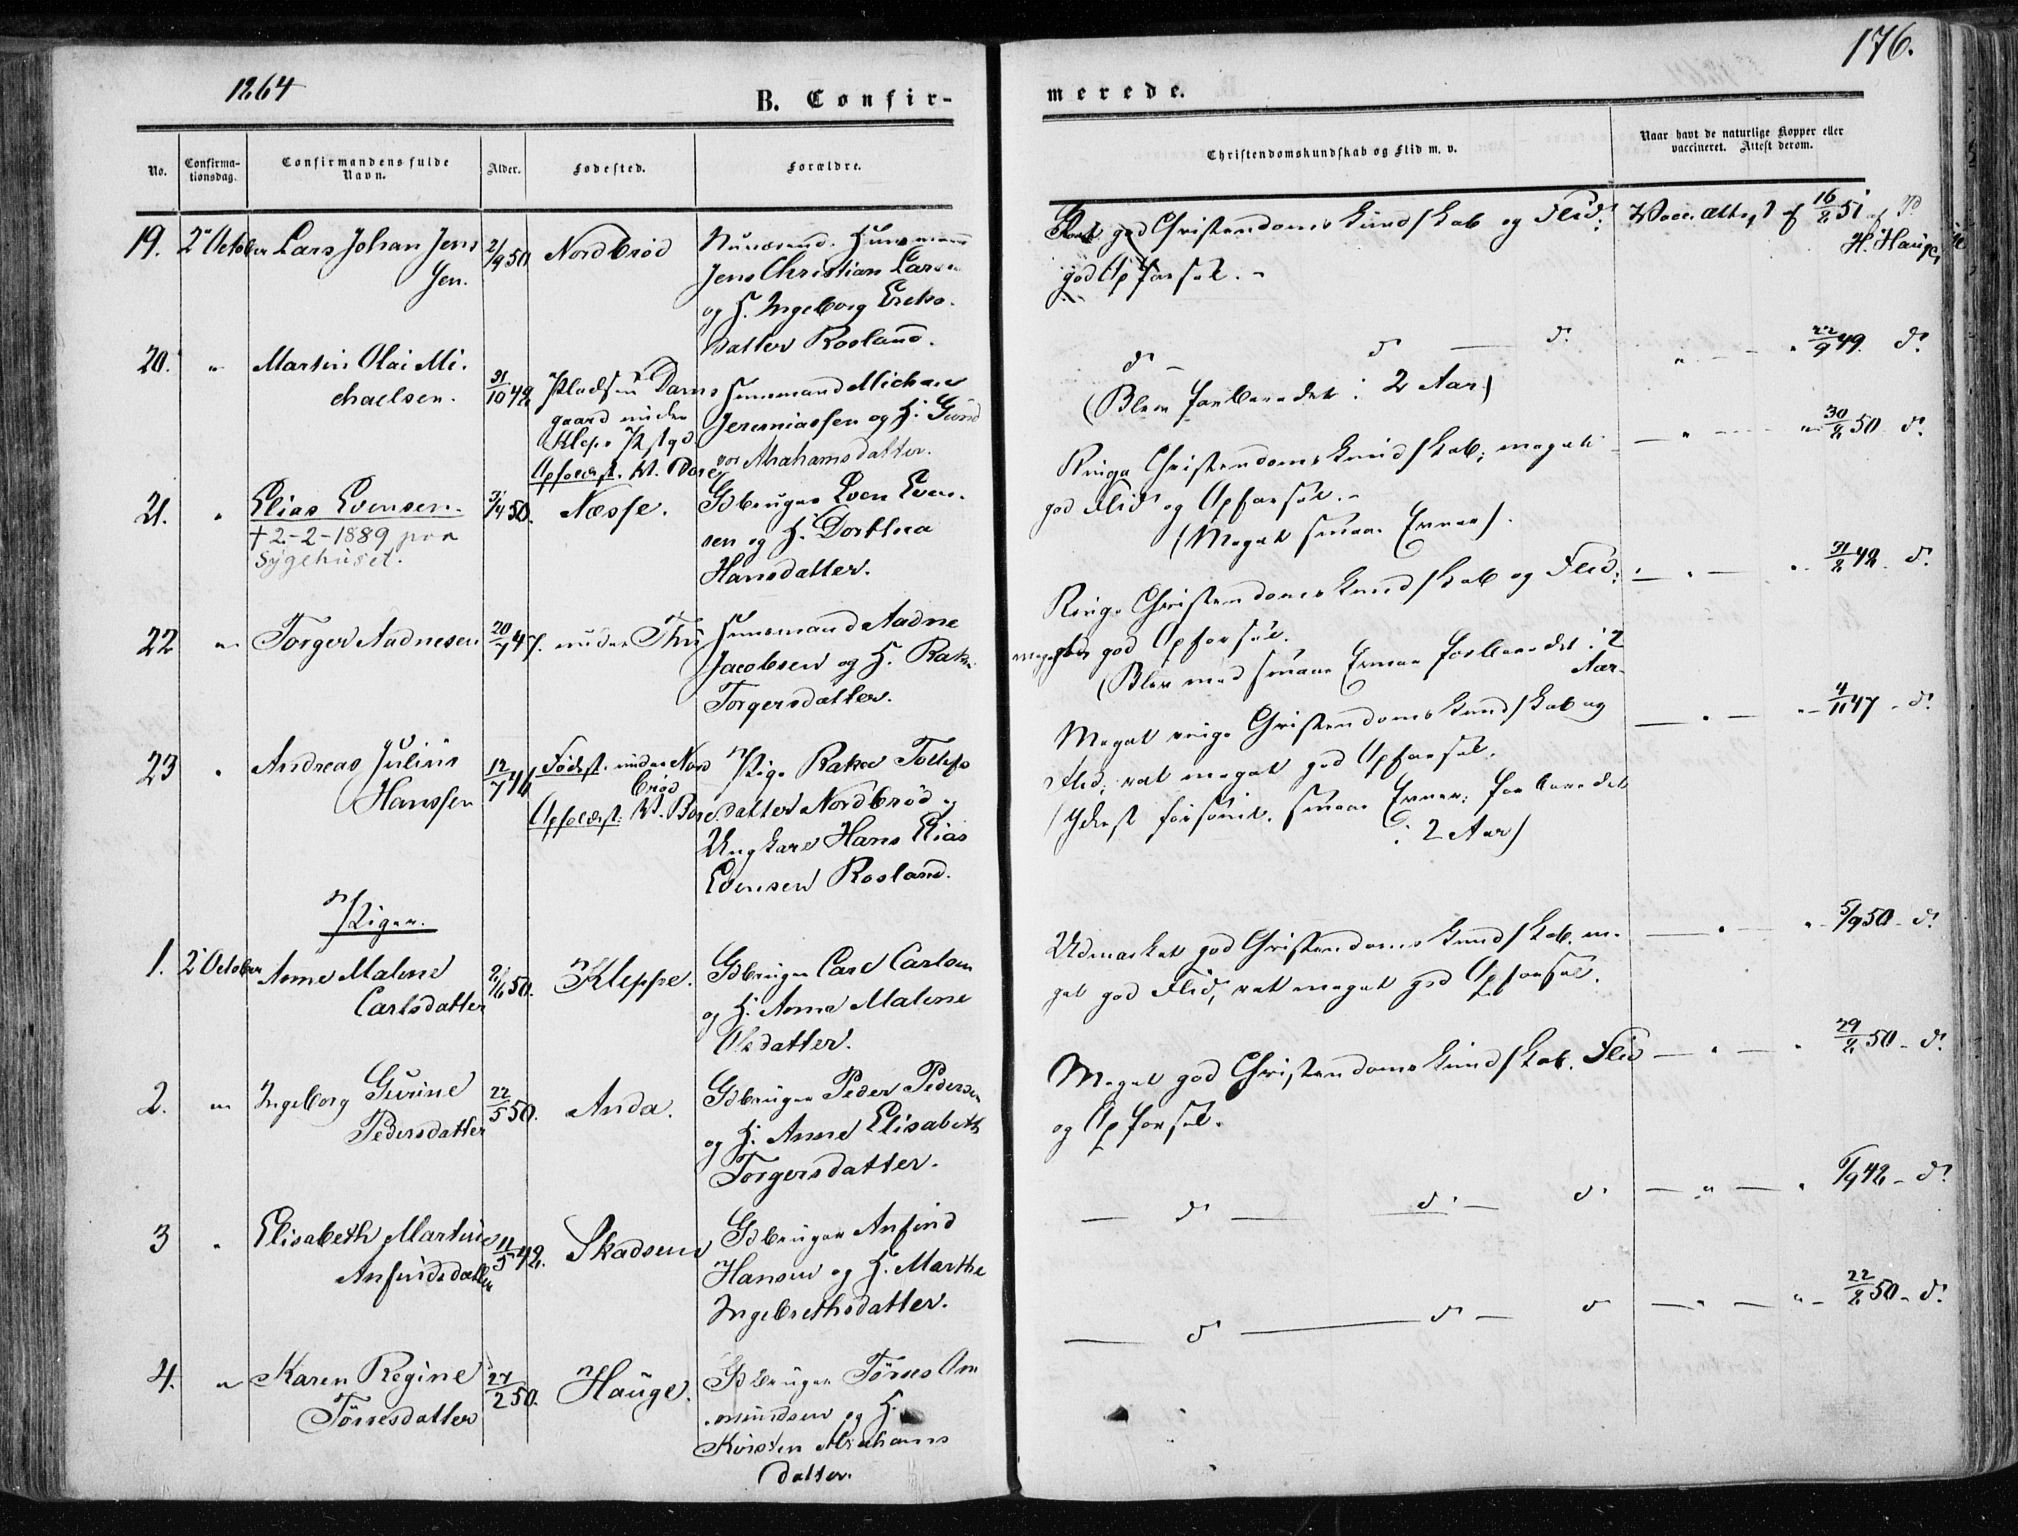 176.
1864
B. Confir-
merede.
No.
Confirma-
tionsdag.
Confirmandens fulde
Navn.
Alder.
Fødested.
Forældre.
Christendomskundskab og Flid m. v.
Naar havt de naturlige Kopper eller
vaccineret. Attest derom.
19. 2 October Lars Johan Jens
sen.
2/9 50 Nordbrød
Huusmand
Jens Christian Larsen
og H. Ingeborg Ereks-
datter Rosland.
god Christendomskundskab og Flid;
god Opførsel.
Vacc. attest af 16/8 51 af
H. Hauge
20. " Martin Olai Mi-
chaelsen.
31/10 48 Pladsen Dams
gaard under
Klepp Pstgd.
Opfoldst. V. Bore
Huusmand Michael
Jeremiassen og H. Gund
vor Abrahamsdatter.
do do do
(Blev forberedet i 2 Aar)
" 22/9 49. do
21. " Elias Evensen.
† 2-2-1889 paa
Sygehuset.
3/4 50. Næsse.
Gdbruger Even Even-
sen og H. Dorthea
Hansdatter.
Ringe Christendomskundskab; meget
god Flid og Opførsel.
(Meget smaae Evner).
" 30/8 50 do
22 " Torger Aadnesen
20/7 47. under Thu
Huusmand Aadne
Jacobsen og H. Rak.
Torgersdatter.
Ringe Christendomskundskab og Flid;
meget god Opførsel.
(Blev med smaae Evner forberedet i 2
Aar.
" 31/8 48 do
23 " Andreas Julius
Hanssen
12/7 46 Fødest. under Nord
brød
Opfoldst. V. Bore.
Pige Rakel Tollefs
datter Nordbrød og
Ungkarl Hans Elias
Evensen Rosland.
Meget ringe Christendomskundskab og
Flid; ret meget god Opførsel.
(Yderst forsømt. smaae Evner; forberedet
i 2 Aar)
" 4/11 47 do
Piger.
1. 2 October Anne Malene
Carlsdatter
2/6 50. Kleppe.
Gdbruger Carl Carlsen
og H. Anne Malene
Olsdatter.
Udmærket god Christendomskundskab, me-
get god Flid, ret meget god Opførsel.
" 5/9 50 do
2. " Ingeborg Gurine
Pedersdatter
22/5 50. Anda.
Gdbruger Peder Pedersen
og H. Anne Elisabeth
Torgersdatter.
Meget god Christendomskundskab, Flid
og Opførsel.
" 29/8 50 do
3 " Elisabeth Martine
Anfindsdatter
11/5 48. Skadsem
Gdbruger Anfind
Hansen og H. Marthe
Ingebrethsdatter.
do do do
" 6/9 48 do
4. " Karen Regine
Tørresdatter
27/2 50. Hauge.
Gdbruger Tørres Om
mundsen og H.
Kirsten Abrahams
datter.
do do do
" 22/8 50 do